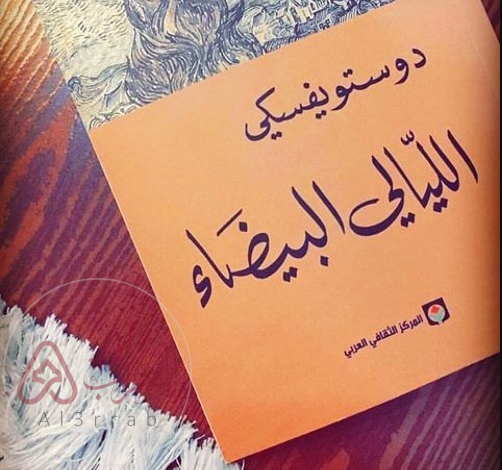 دوستويفسيكي
الليّالي البيضَاء
المركز الثقافي العربي
Al3rrab